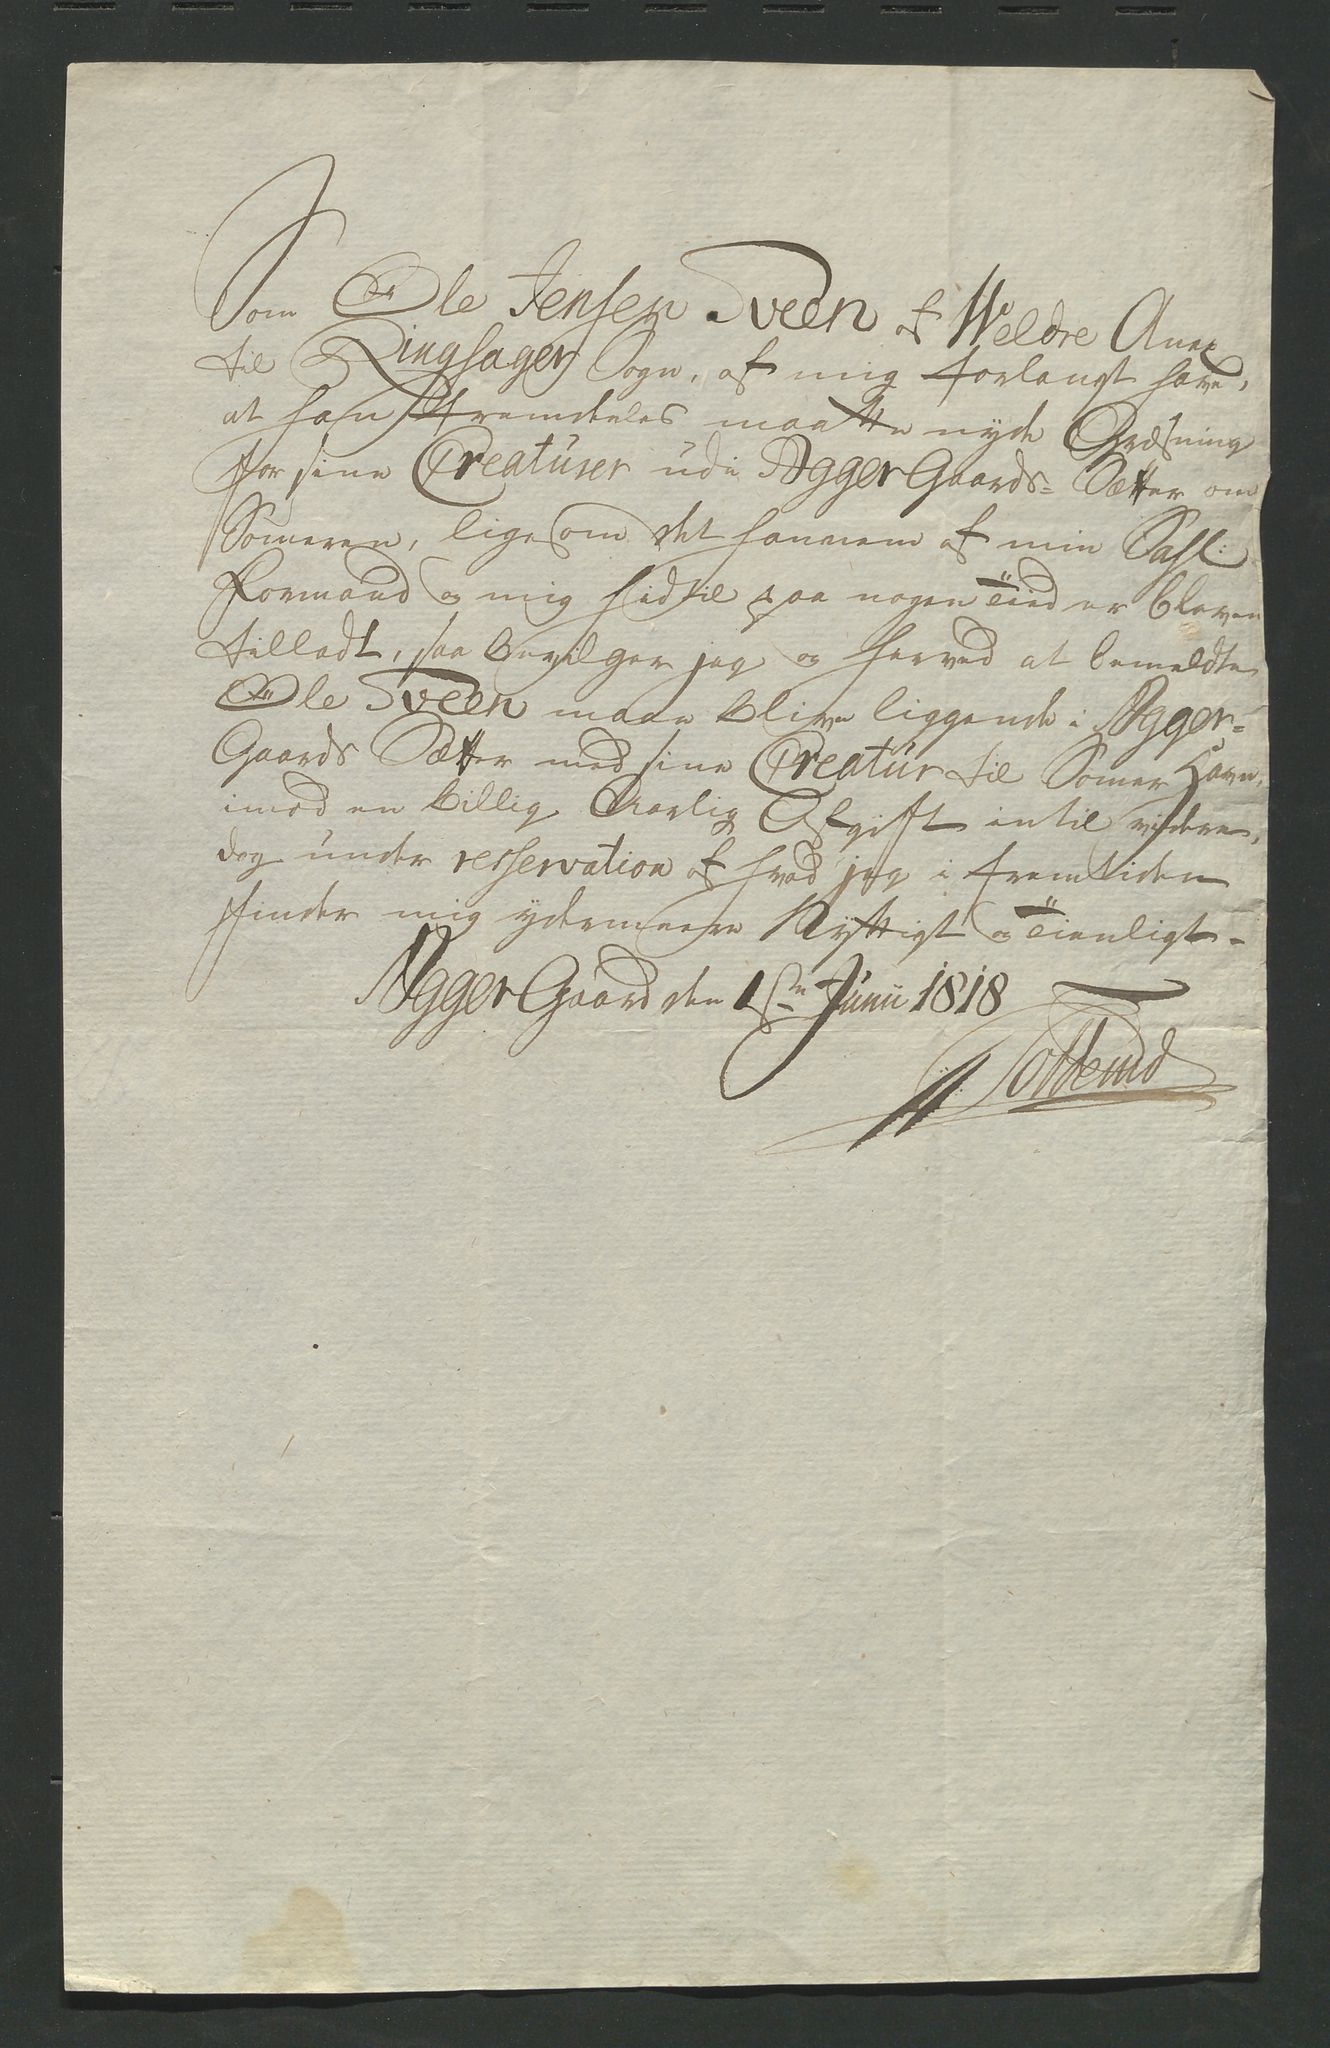 Som Ole Jensen Sveen af Weldre Anex
til Ringsager Sogn, af mig forlangt have,
at han fremdeeles maatte nyde Græsning
for sine Creatuser udi AggerGaards= Sætter om
Someren, ligesom det hannem af min Sahl:
Formand og mig hidtil paa nogen Tiid er bleven
tilladt, saa bevilger jeg og herved at bemeldte
Ole Sveen maae blive liggende i Agger=
Gaards Sætter med sine Creatur til Somer Havn,
imod en billig Aarlig Afgift intil videre,
dog under resservation af hvad jeg i fremtiden
finder mig ydermeere Nyttigt og Tienligt.
AggerGaard den 1ste Junii 1818